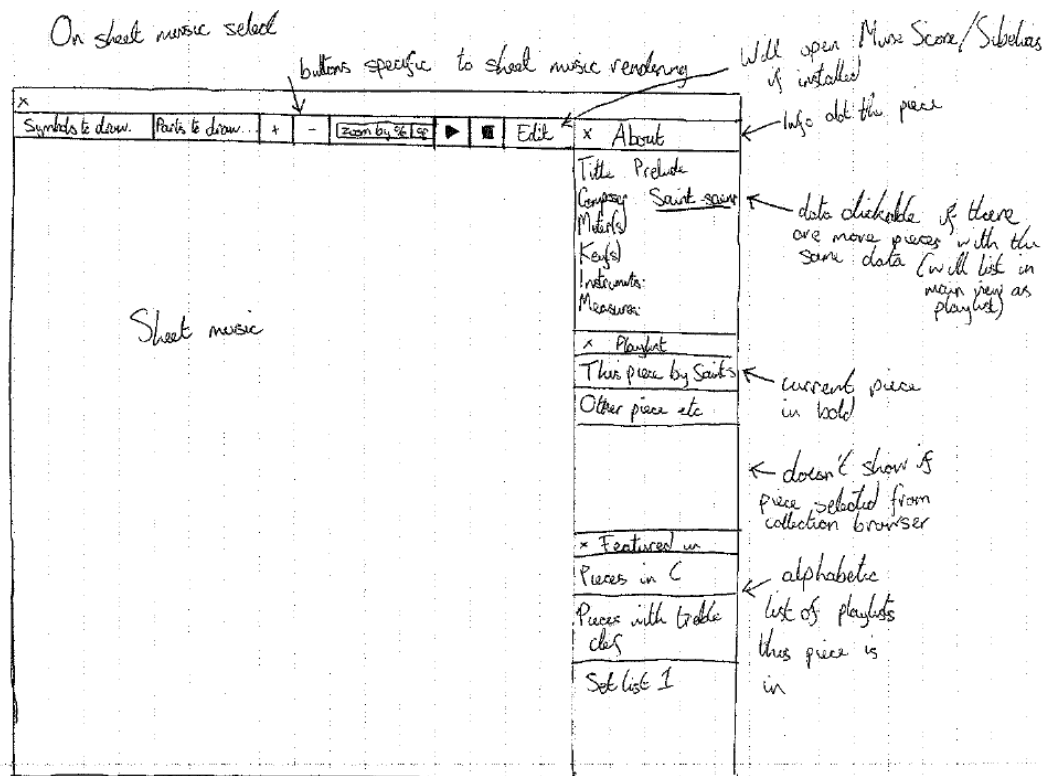 On sheet music select
buttons specific to sheet music rendering
Will open MuseScore/Sibelius
if installed
Info abt the piece
x
Symbols to draw.. Parts to draw... + - zoom by % Edit
x About
Title Prelude
Composer Saint-saens
Meter(s)
Key(s)
Instruments:
Measures:
data clickable if there
are more pieces with the
same data (will list in
main view as
playlist)
Sheet music
x Playlist
This piece by Saint-s
Other piece etc
current piece
in bold
doesn't show if
piece selected from
collection browser
x Featured in
Pieces in C
Pieces with treble
clef
Set list 1
alphabetic
list of playlists
this piece is
in